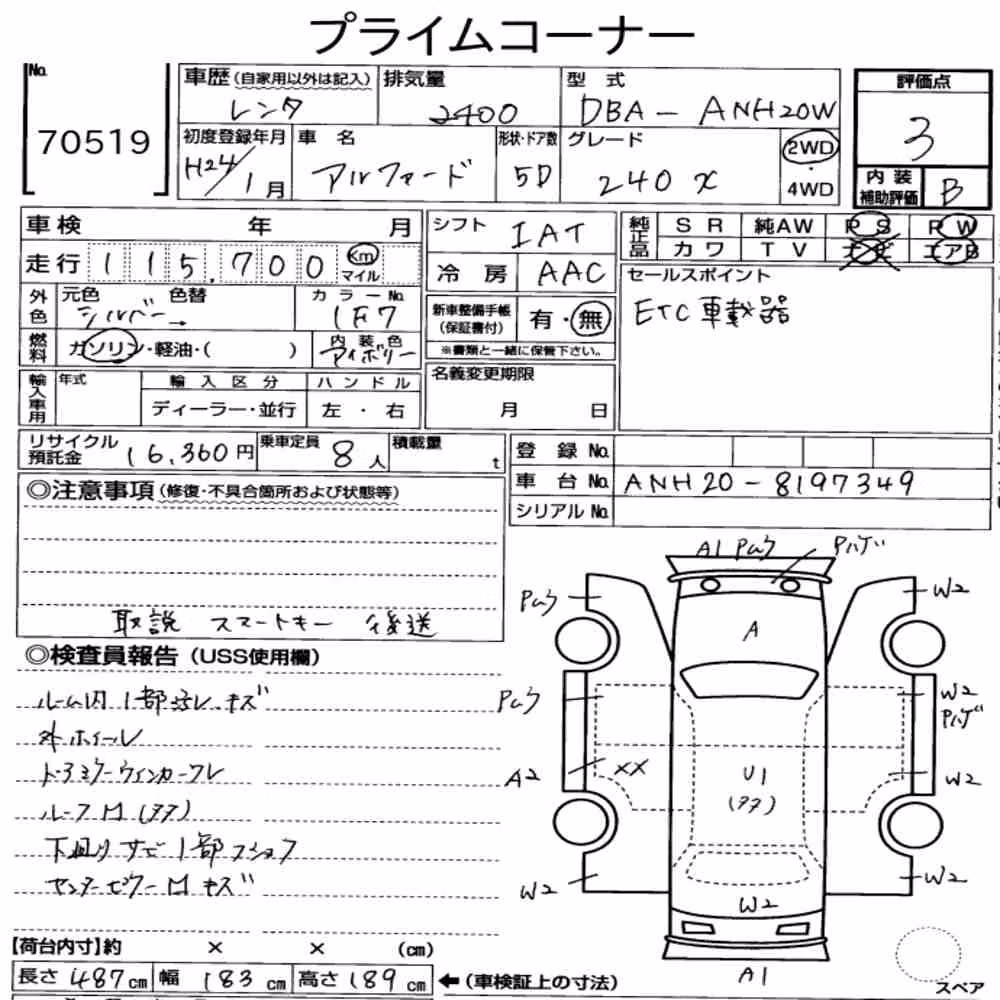 プライムコーナー
No.
70519
車歴(自家用以外は記入) 排気量 型式
レンタ 2400 DBA-ANH20W
初度登録年月 車名 形状・ドア数 グレード
H24/1月 アルファード 5D 240 X 2WD・4WD
評価点
3
内装補助評価 B
車検 年 月
走行 115,700 Km マイル
外色 元色 色替 カラーNo.
シルバー → 1F7
燃料 ガソリン・軽油・( ) 内装色 アイボリー
輸入車用 年式 輸入区分 ハンドル
ディーラー・並行 左・右
シフト IAT
冷房 AAC
新車整備手帳(保証書付) 有・無
※書類と一緒に保管下さい。
名義変更期限
月 日
純正品 SR 純AW PS PW
カワ TV ナビ エアB
セールスポイント
ETC車載器
リサイクル預託金 16,360円 乗車定員 8人 積載量 t
登録No.
車台No. ANH20-8197349
シリアルNo.
◎注意事項(修復・不具合箇所および状態等)
取説 スマートキー 後送
◎検査員報告(USS使用欄)
ルーム内1部汚レ キズ
外ホイール
ドアミラーウィンカーワレ
ルーフ凹(アタ)
下廻りサビ1部フショク
センターピラー凹キズ
A1 Pムラ Pハゲ
Pムラ W2
A
Pムラ W2 Pハゲ
A2 XX U1 (アタ) W2
W2 W2 W2
A1
スペア
【荷台内寸】約 × × (cm)
長さ 487cm 幅 183cm 高さ 189cm ←(車検証上の寸法)